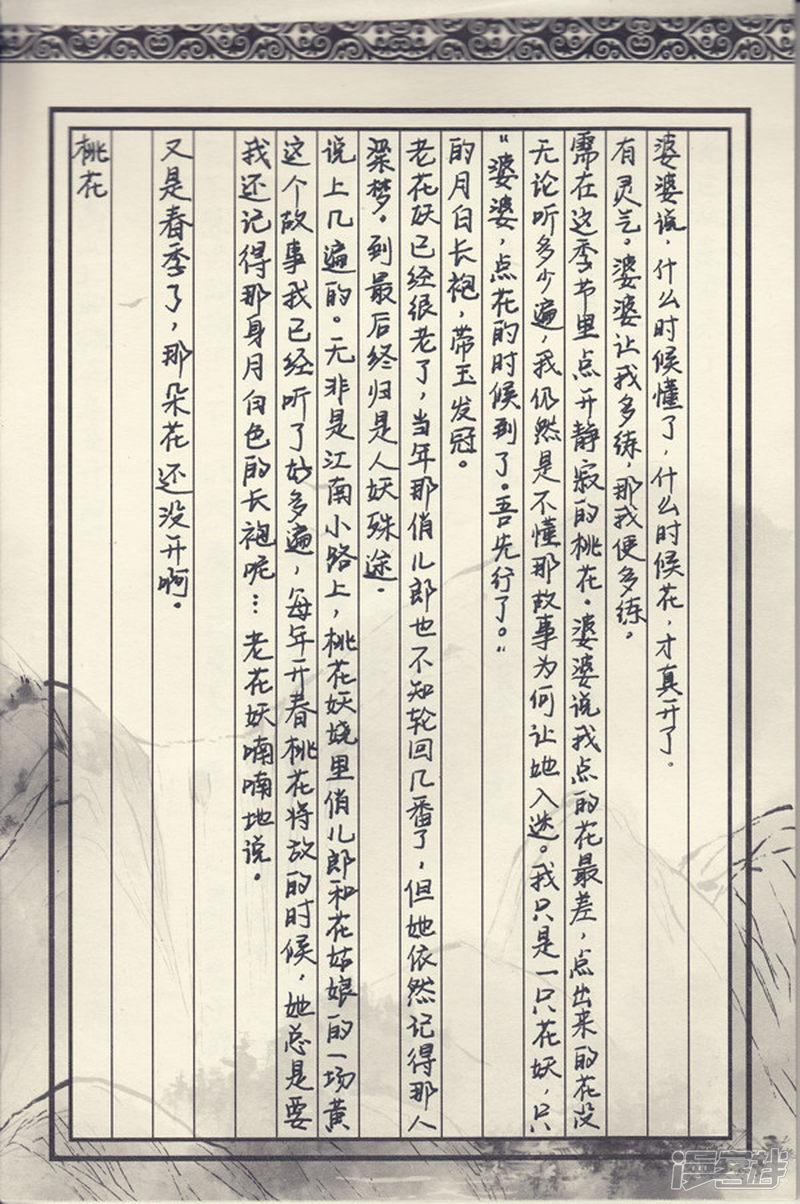 桃花
又是春季了，那朵花还没开啊。
我还记得那身月白色的长袍呢…老花妖喃喃地说。
这个故事我已经听了好多遍，每年开春桃花将放的时候，她总是要
说上几遍的。无非是江南小路上，桃花妖娆里俏儿郎和花姑娘的一场黄
粱梦。到最后终归是人妖殊途。
老花妖已经很老了，当年那俏儿郎也不知轮回几番了，但她依然记得那人
的月白长袍，带玉发冠。
“婆婆，点花的时候到了。吾先行了。”
无论听多少遍，我仍然是不懂那故事为何让她入迷。我只是一只花妖，只
需在这季节里点开静寂的桃花。婆婆说我点的花最差，点出来的花没
有灵气。婆婆让我多练，那我便多练。
婆婆说，什么时候懂了，什么时候花，才真开了。